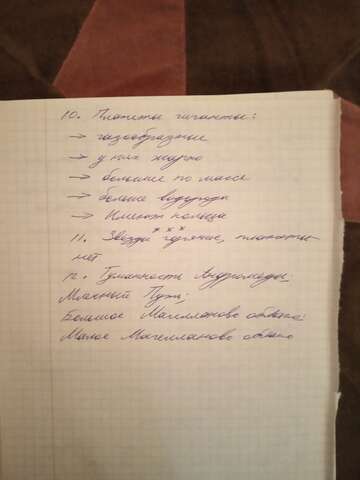 10. Планеты гиганты:
→ газообразные
→ у них жарко
→ большие по массе
→ больше водорода
→ Имеют кольца
11. Звёзды горячие, планеты
нет
12. Туманность Андромеды;
Млечный Путь;
Большое Магелланово облако;
Малое Магелланово облако